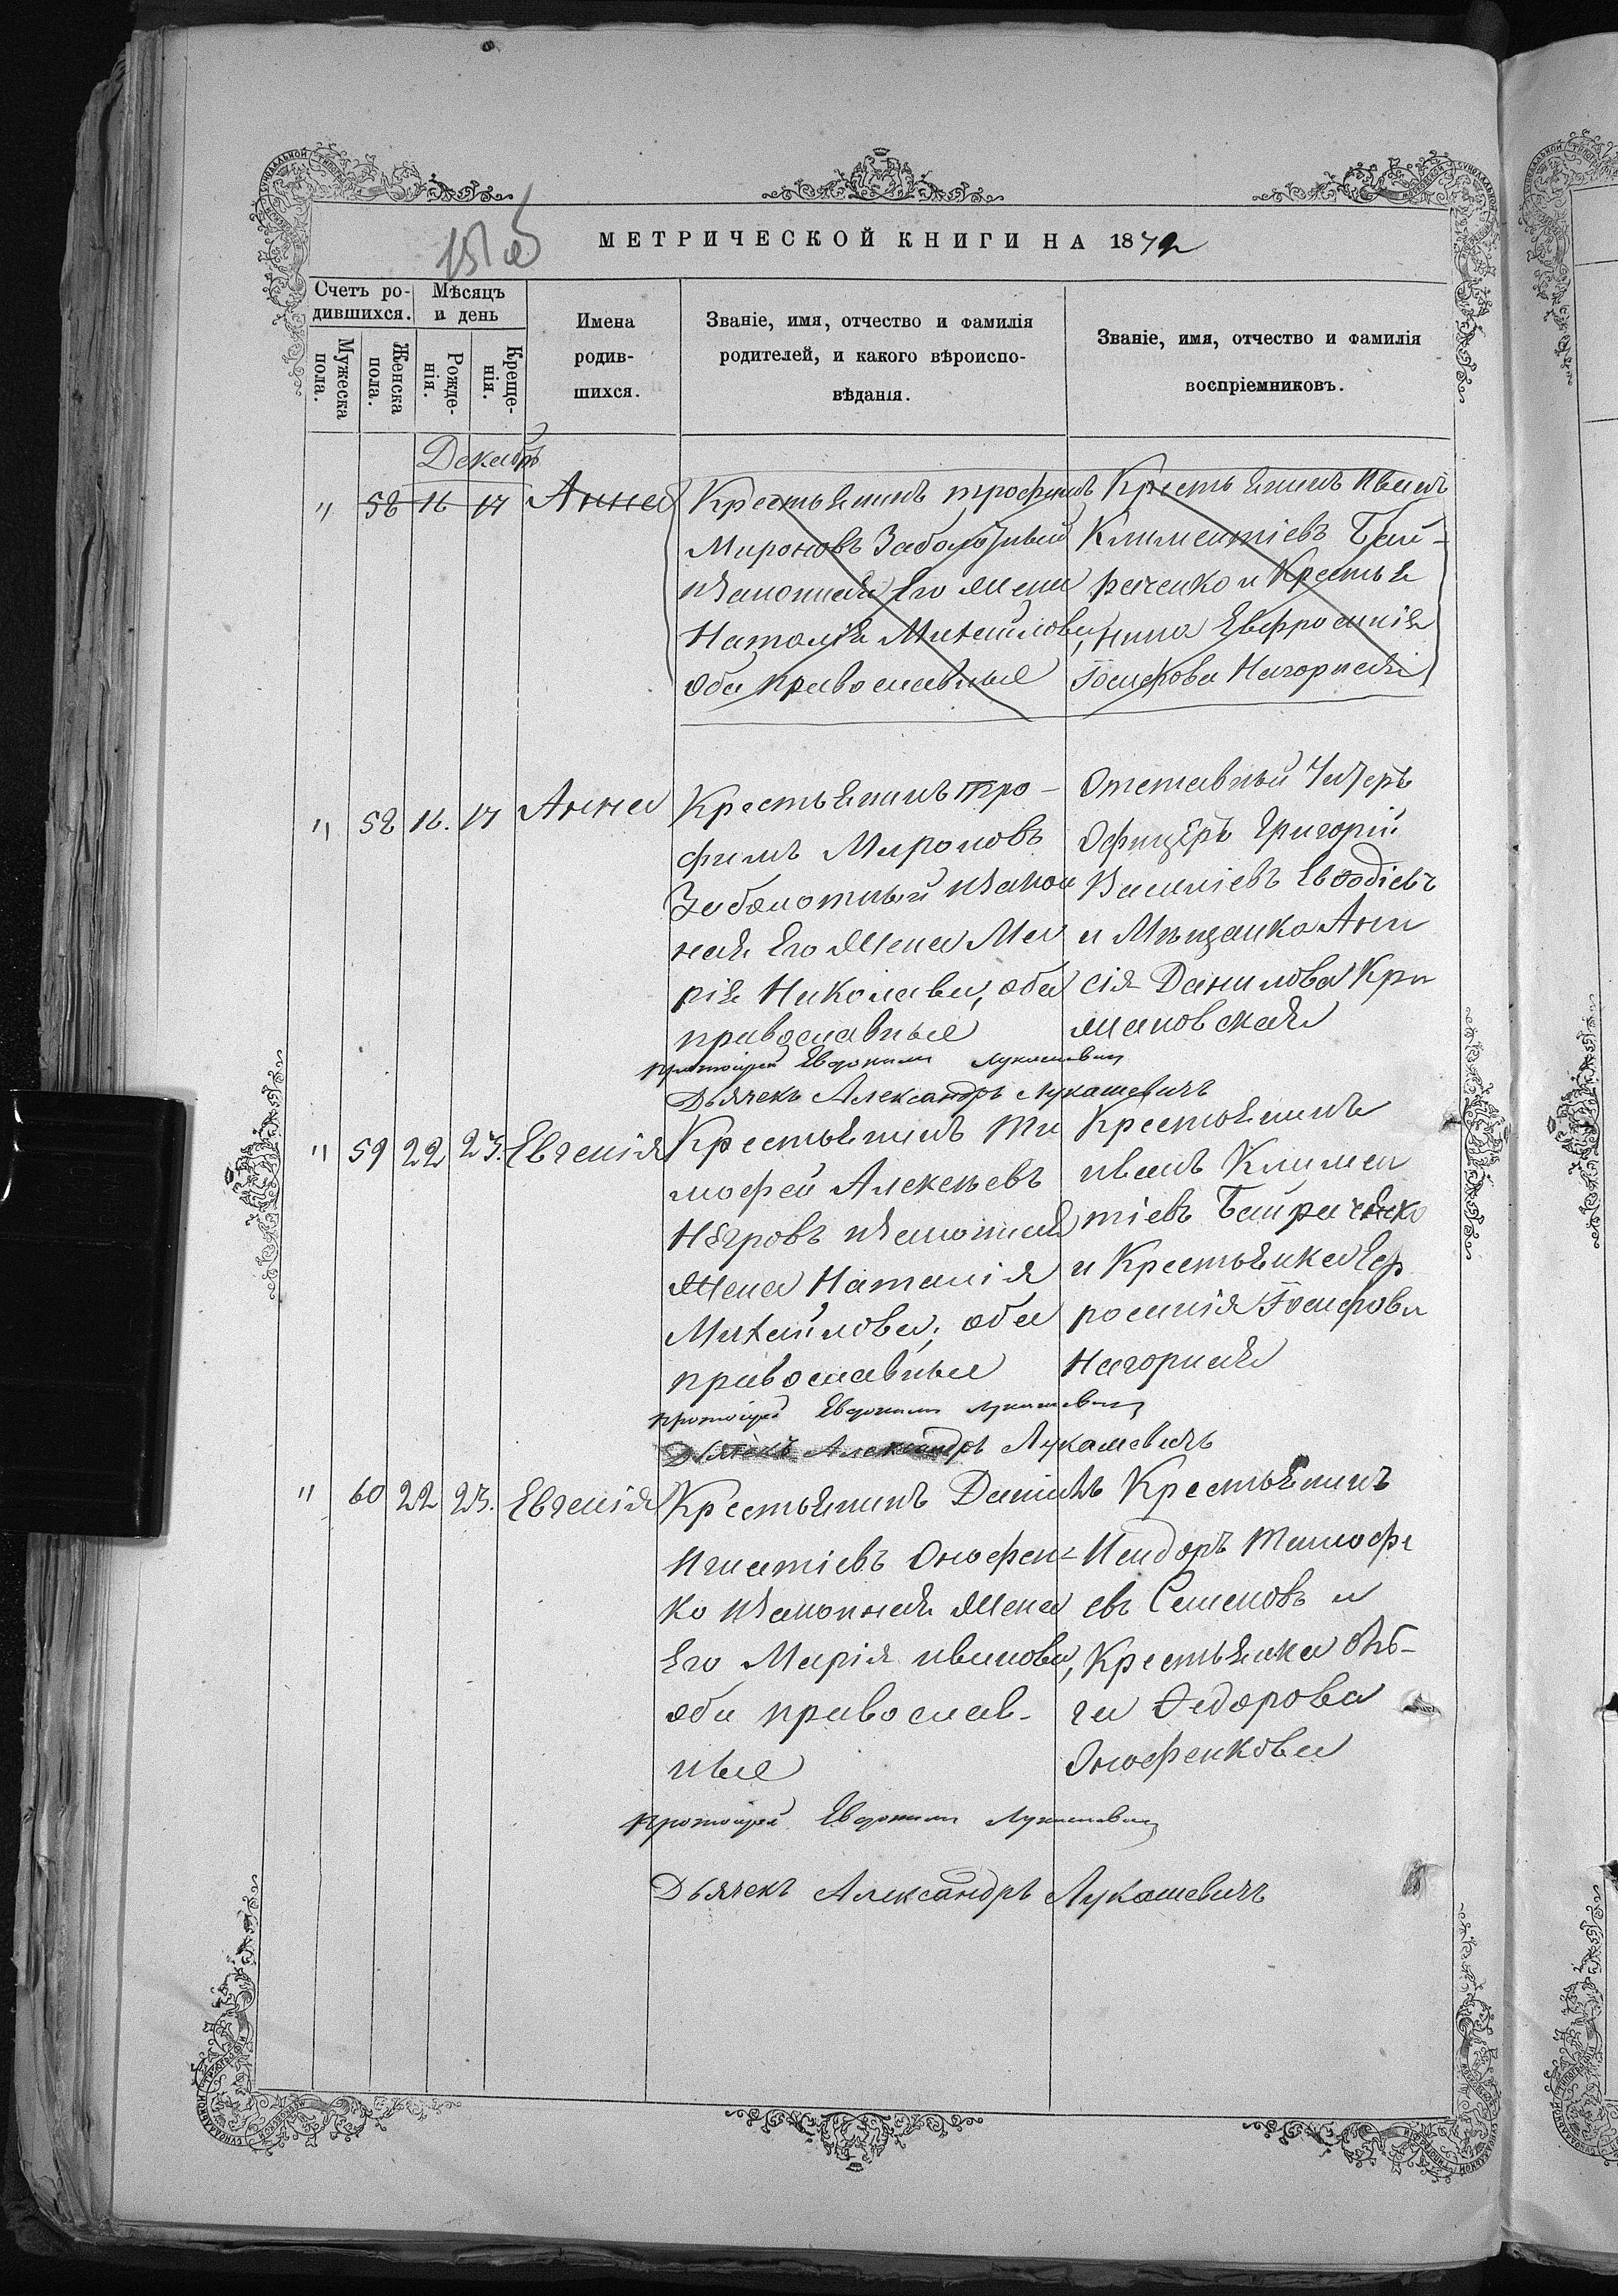 МЕТРИЧЕСКОЙ КНИГИ НА 1872
Счетъ ро-
дившихся.
Мѣсяцъ
и день
Мужеска
пола.
Женска
пола.
Рожде-
нія.
Креще-
нія.
Имена
родив-
шихся.
Званіе, имя, отчество и фамилія
родителей, и какого вѣроиспо-
вѣданія.
Званіе, имя, отчество и фамилія
воспріемниковъ.
Декабрь
" 58 16 17 Анна
Крестьянинъ трофимъ
Мироновъ Заболотный
изаконная Его жена
Наталія Михайлова,
оба православные
Крестьянинъ Иванъ
Климентіевъ Бай-
раченко и Крестья
нина Евфросинія
Іосифова Нагорная
" 58 16. 17 Анна
Крестьянинъ тро-
фимъ Мироновъ
Заболотный изакон
ная Его жена Ма
рія Николаева, оба
православные
Отставный Унтеръ
Офицеръ Григорій
Василіевъ Евводіевъ
и Мѣщанка Ани
сія Данилова Кри
жановская
протоіерей Евдокимъ Лукашевич
Дьячекъ Александръ Лукашевичъ
" 59 22 23. Евгенія
Крестьянинъ Ти
мофей Алексѣевъ
изаконная
жена Наталія
Михайлова, оба
православные
Крестьянинъ
иванъ Климен
тіевъ Байраченко
и Крестьянка Еф
росинія Іосифова
Нагорная
протоіерей Евдокимъ Лукашевич
Дьячекъ Александръ Лукашевичъ
" 60 22 23. Евгенія
Крестьянинъ Даніилъ
Игнатіевъ Онофрен-
ко изаконная жена
Его Марія иванова,
оба православ-
ные
Крестьянинъ
Исидоръ Тимофе
евъ Семеновъ и
Крестьянка Оль-
га Федорова
Онофренкова
протоіерей Евдокимъ Лукашевич
Дьячекъ Александръ Лукашевичъ